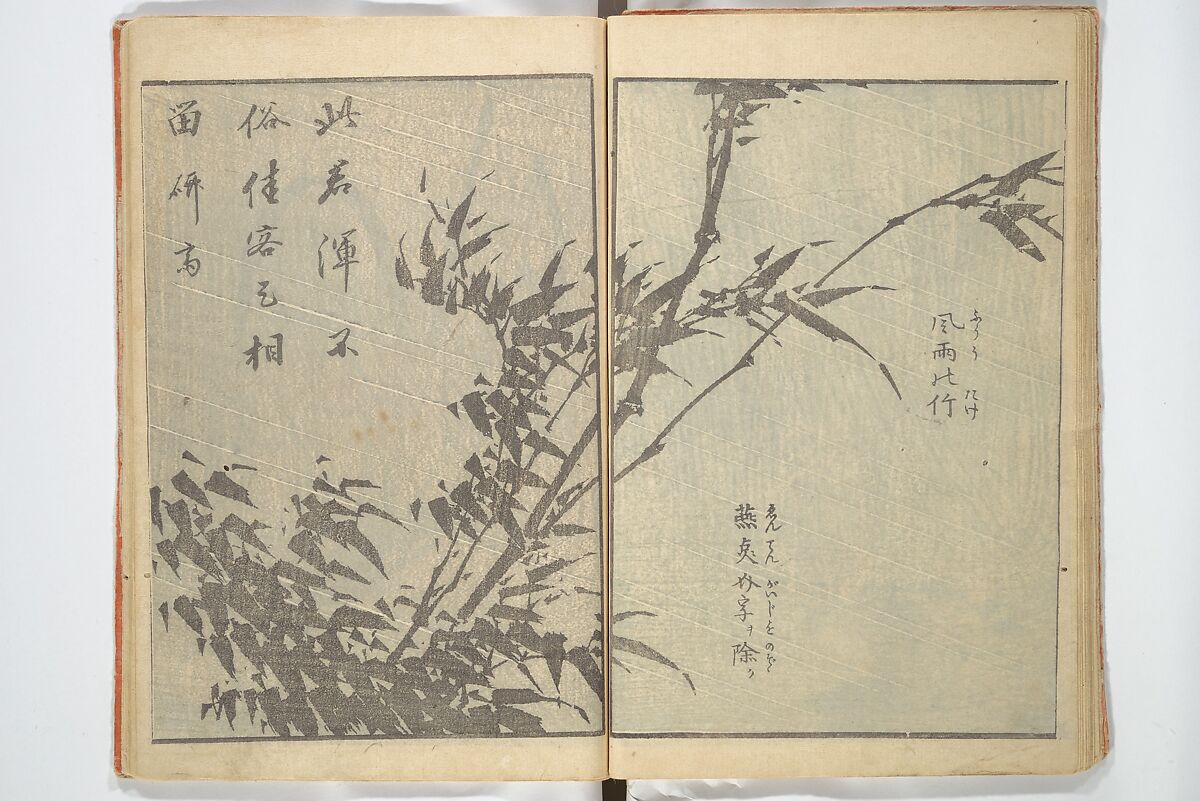 風雨の竹
ふうう たけ
燕奌介字ヲ除ク
ゑんてん がいじをのぞく
此君渾不
俗佳客已相
畄研